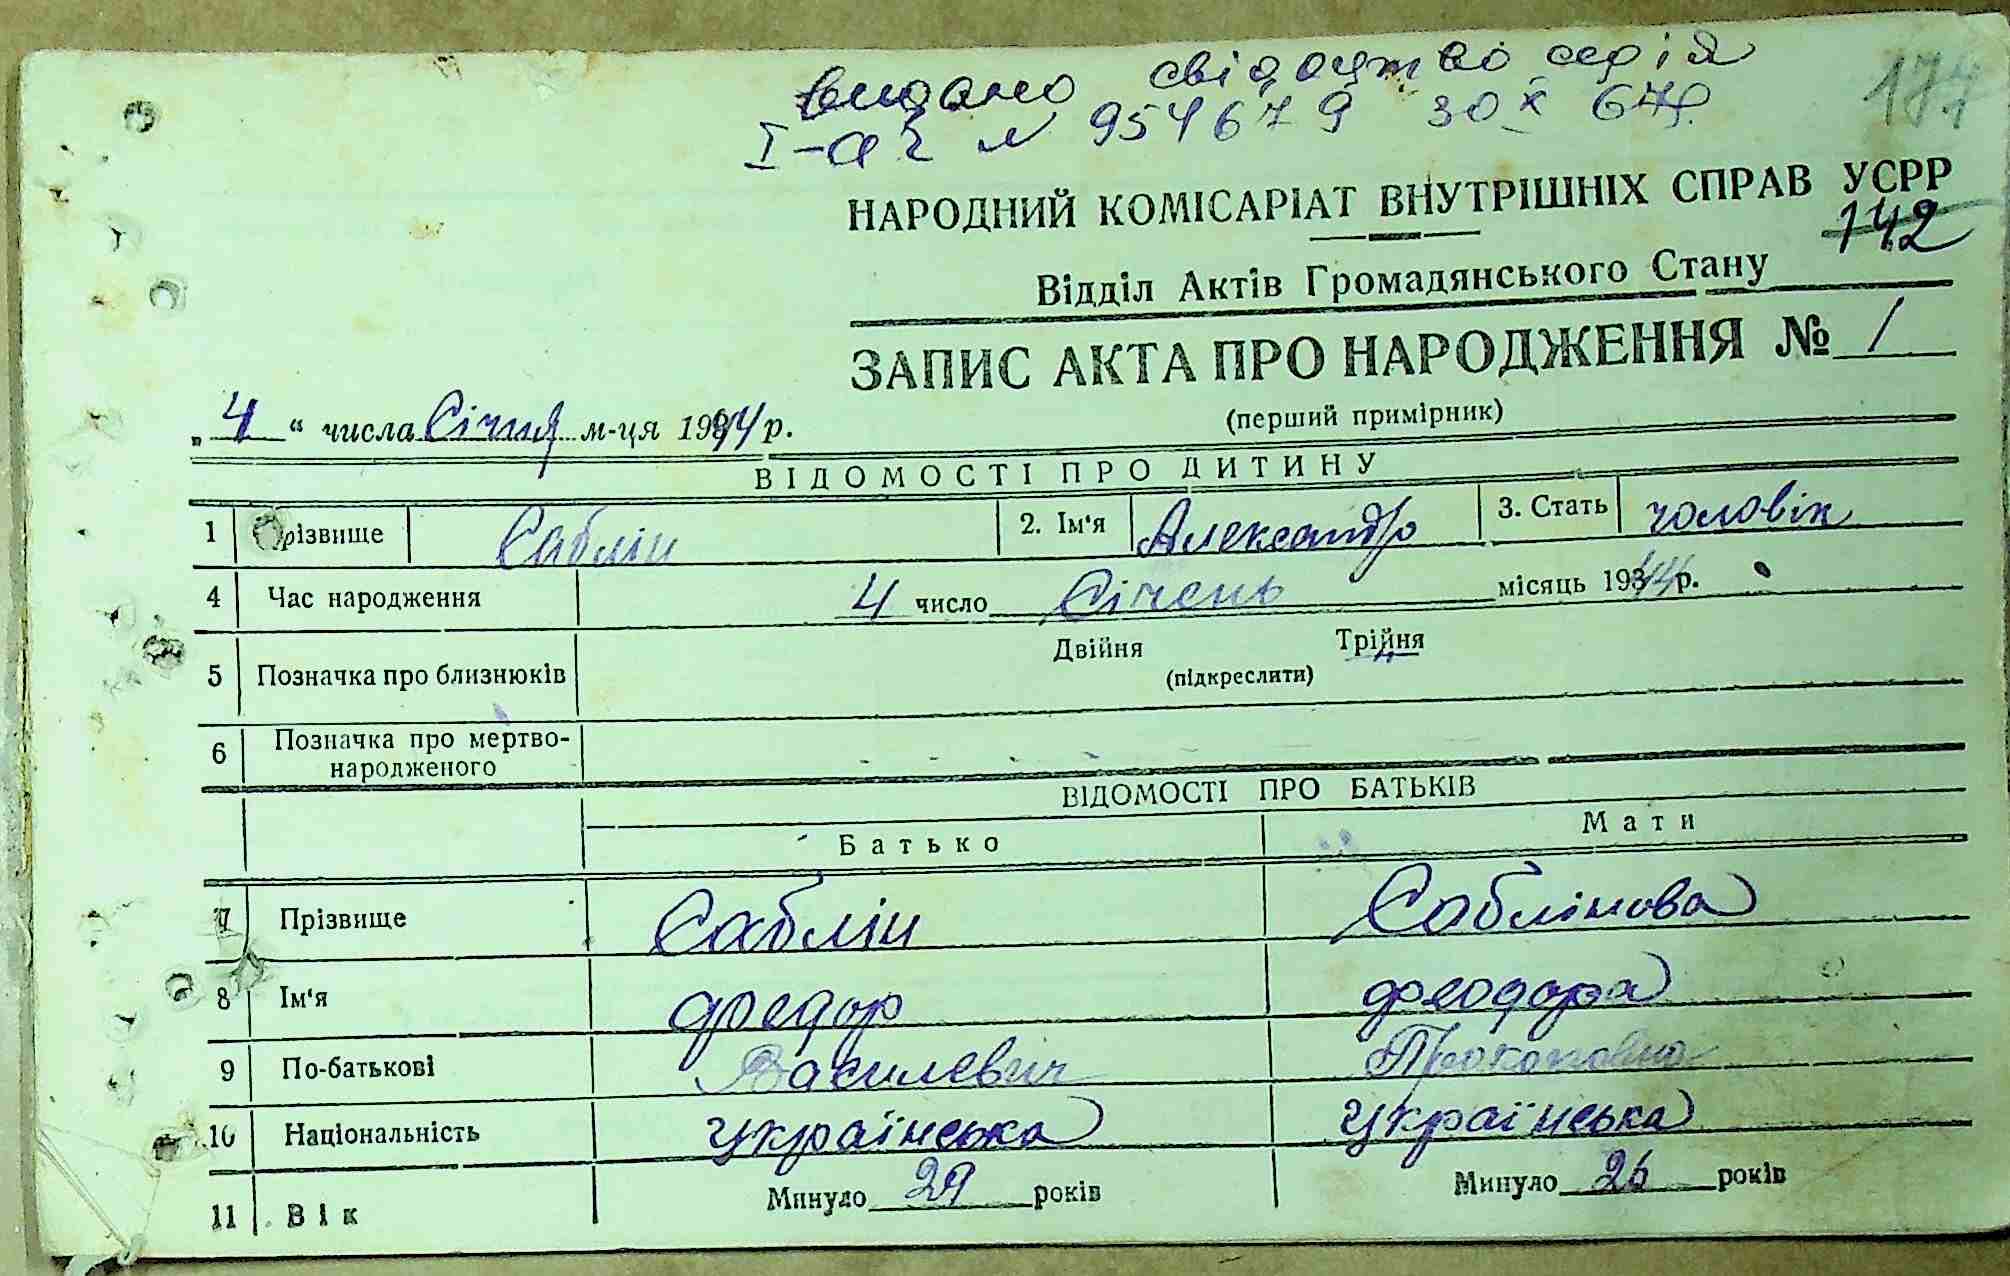 видано свідоцтво серія
I-АЧ № 954679 30 X 67р.
НАРОДНИЙ КОМІСАРІАТ ВНУТРІШНІХ СПРАВ УСРР
142
Відділ Актів Громадянського Стану
ЗАПИС АКТА ПРО НАРОДЖЕННЯ № 1
(перший примірник)
„4“ числа Січня м-ця 1944 р.
ВІДОМОСТІ ПРО ДИТИНУ
1 Прізвище Саблін 2. Ім'я Александр 3. Стать чоловік
4 Час народження 4 число Січень місяць 1944 р.
5 Позначка про близнюків Двійня Трійня
(підкреслити)
6 Позначка про мертво-
народженого
ВІДОМОСТІ ПРО БАТЬКІВ
Батько Мати
7 Прізвище Саблін Саблінова
8 Ім'я Федор Феодора
9 По-батькові Василевич Прокоповна
10 Національність українська українська
11 Вік Минуло 29 років Минуло 26 років